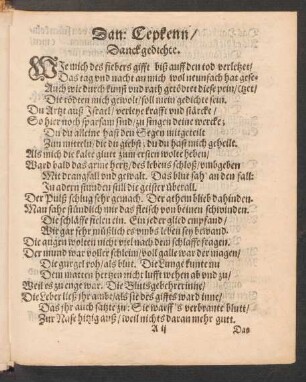 Dan: Cepkenn/
Danckgedichte.
WJe mich des fiebers gifft biß auff den tod verletzet/
Das tag vnd nacht an mich wol neunfach hat gese-
Auch wie durch kunst vnd rath getödtet diese pein/ tzet/
Die tödten mich gewolt/ soll mein gedichte sein.
Du Artzt auß Jsrael/ verleihe krafft vnd stärcke/
So hier noch sparsam sind/ zu singen deine wercke;
Du du alleine hast den Segen mitgeteilt
Zun mitteln/ die du giebst; du du hast mich geheilt.
Als mich die kalte glutt zum ersten wolte heben/
Ward bald das arme hertz/ des lebens schloß/ vmbgeben
Mit drangsall vnd gewalt. Das blut sah' an den fall:
Zu adern stunden still die geister überall.
Der Pulß schlug sehr gemach. Der athem blieb dahinden.
Man sahe stündlich mir das fleisch von beinen schwinden.
Die schläffe fielen ein. Ein jeder glied empfand/
Wie gar sehr mißlich es vmbs leben sey bewand.
Die augen wolten nicht viel nach dem schlaffe fragen.
Der mund war voller schleim/ voll galle war der magen/
Die gurgel roh/ als blut. Die Lunge kunte nu
Dem matten hertzen nicht lufft wehen ab vnd zu/
Weil es zu enge war. Die Bluts gebehrerinne/
Die Leber ließ ihr ambt/ als sie des giftes ward inne/
Das ihr auch satzte zu: Sie warff 's verbrante blutt/
Zur Nase hitzig auß/ weil nichts daran mehr gutt.
A ij
Das